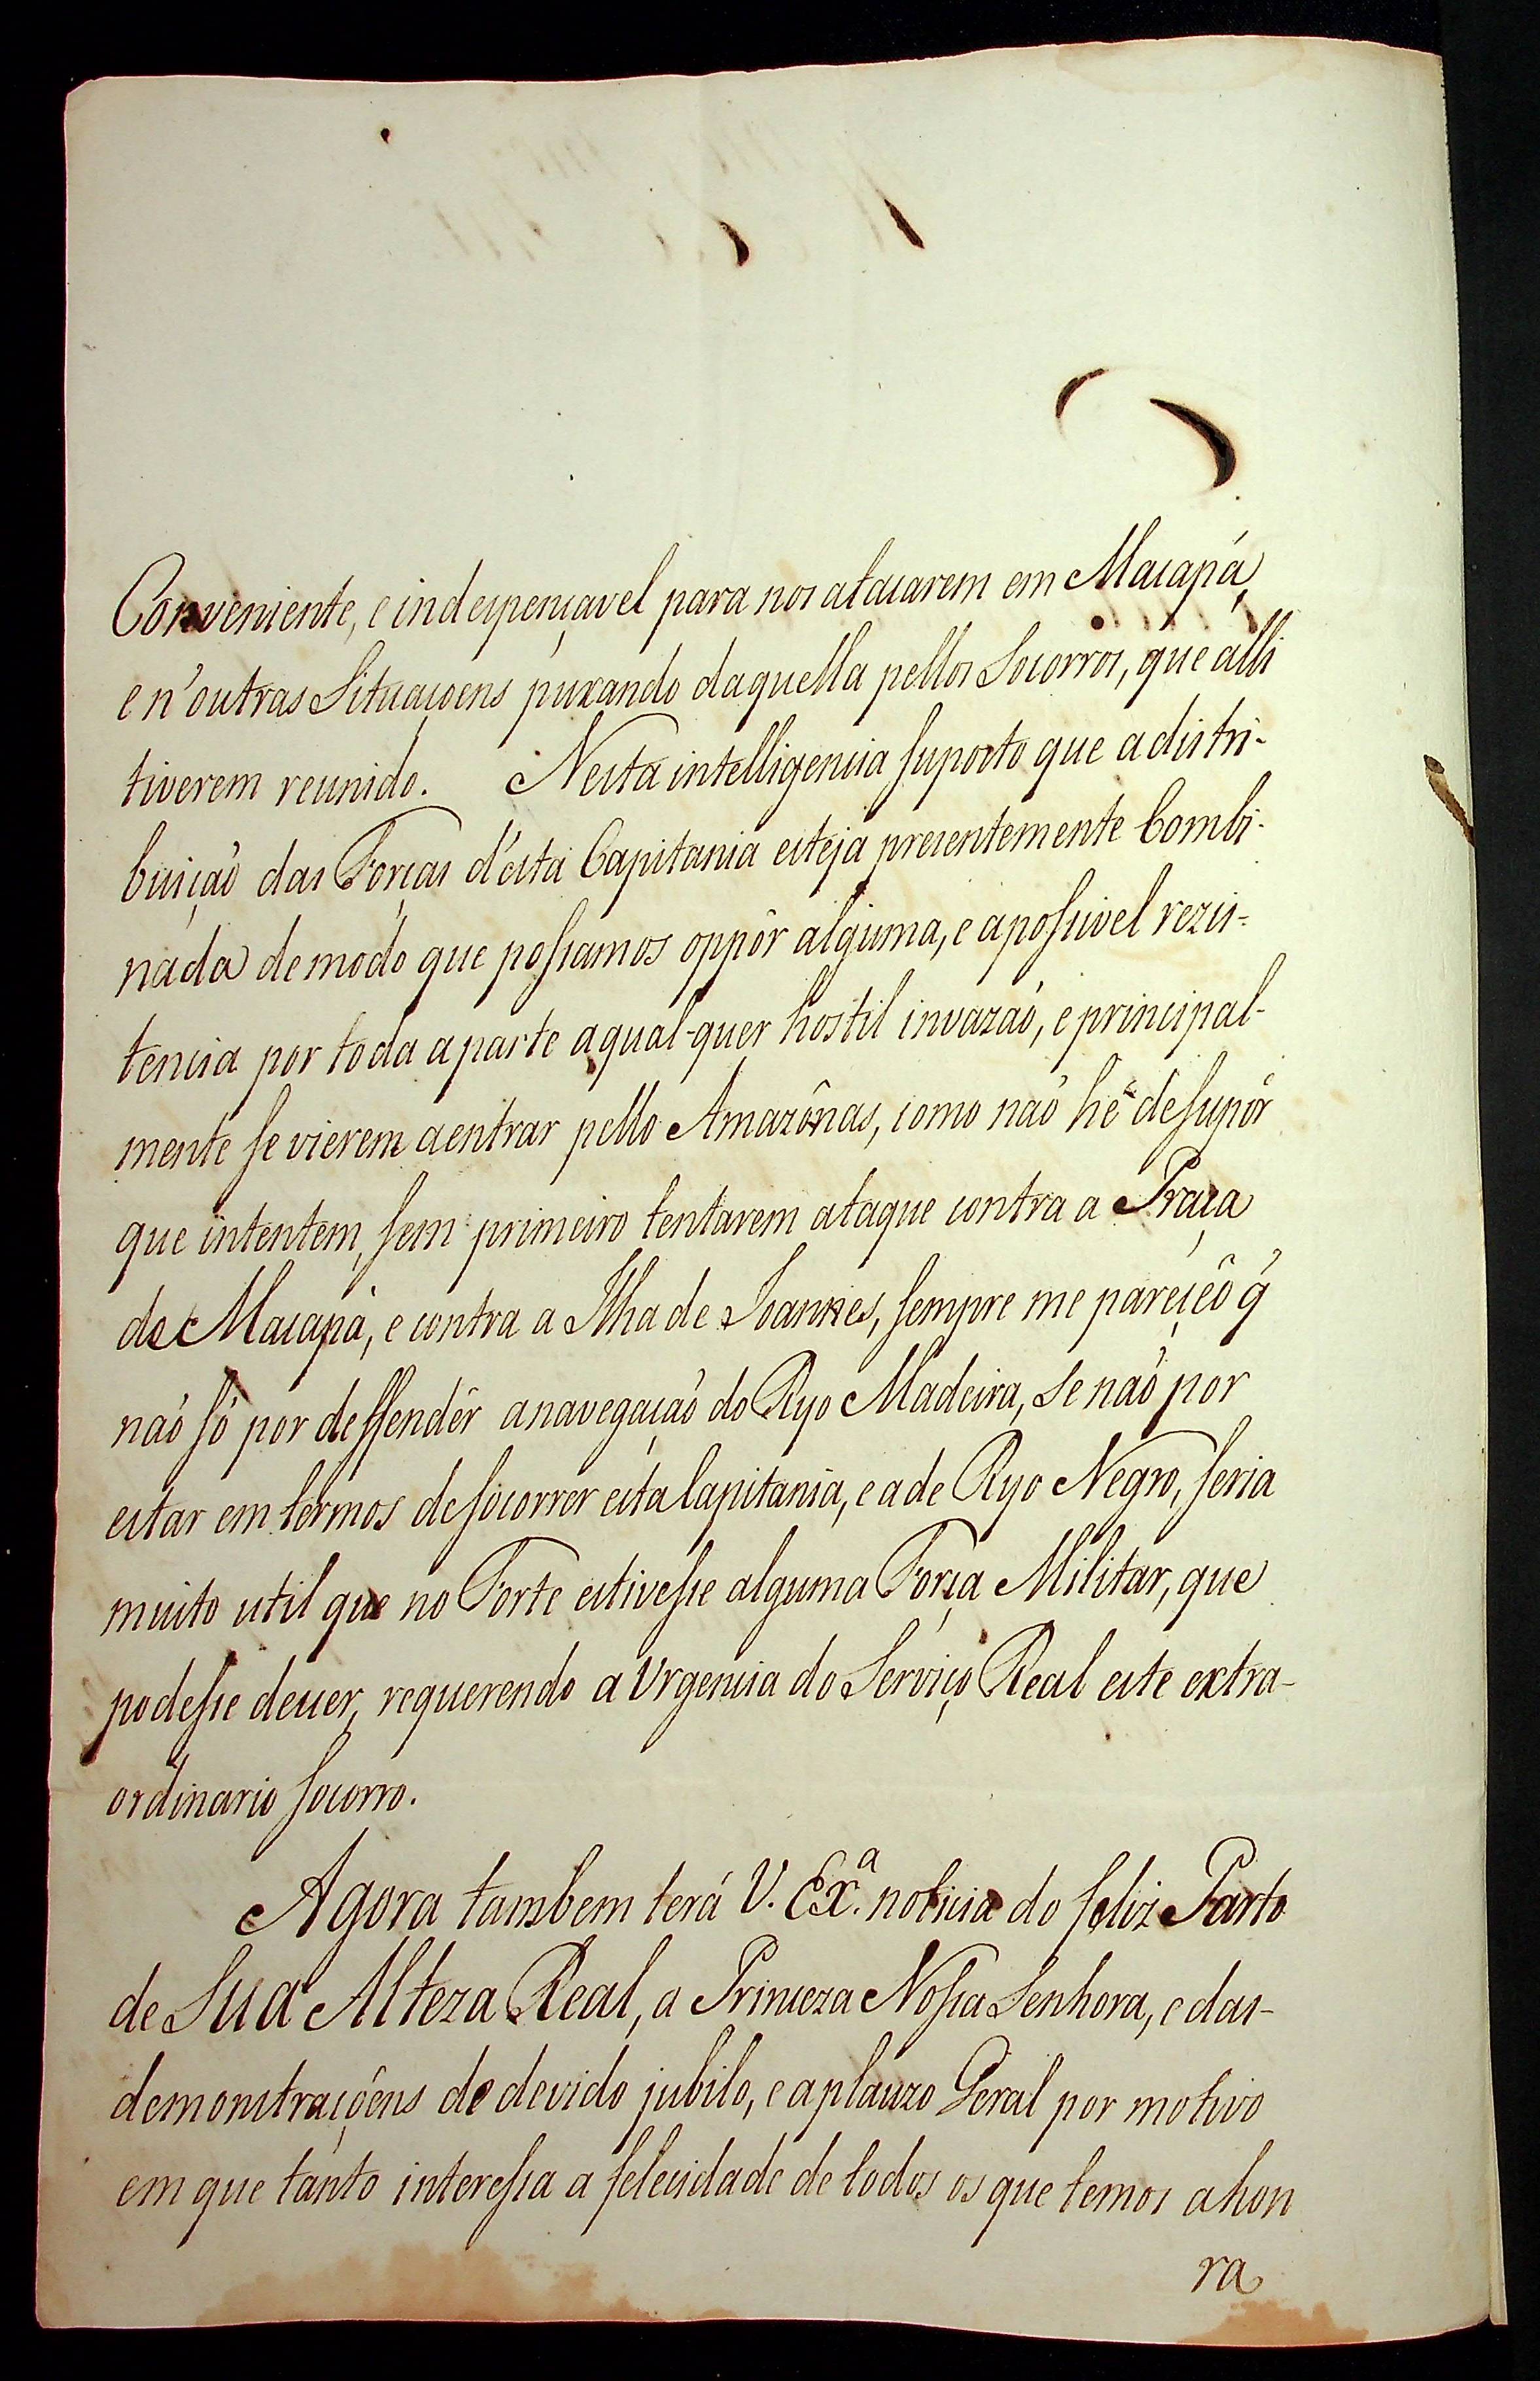 Conveniente, e indespençavel para nos atacarem em Macapá,
e n'outras Situaçoens puxando daquella pellos Socorros, que alli
tiverem reunido. Nesta intelligencia suposto que a distri-
buiçaõ das Forças d'esta Capitania esteja prezentemente Combi-
nada de modo que possamos oppôr alguma, e a possivel rezis-
tencia por toda a parte a qual-quer hostil invazaõ, e principal-
mente se vierem a entrar pello Amazônas, como naõ hé de supôr
que intentem, sem primeiro tentarem ataque contra a Praça
de Macapá, e contra a Ilha de Joannes, sempre me pareçeô q̃
naõ só por deffendêr a navegaçaõ do Ryo Madeira, se naõ por
estar em termos de socorrer esta Capitania, e a de Ryo Negro, seria
muito util que no Forte estivesse alguma Força Militar, que
podesse decer, requerendo a Urgencia do Serviço Real este extra-
ordinario socorro.
Agora tambem terá V. Exª. noticia do feliz Parto
de Sua Alteza Real, a Princeza Nossa Senhora, e das-
demonstraçôens de devido jubilo, e aplauzo Geral por motivo
em que tanto interessa a felecidade de todos os que temos a hon
ra